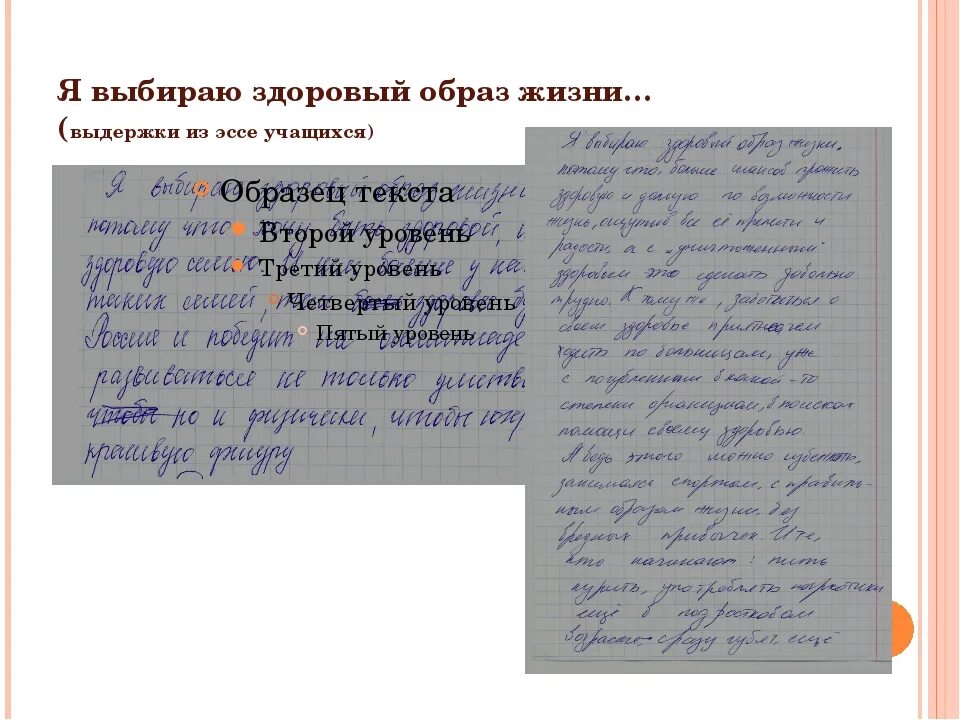 Я выбираю здоровый образ жизни...
(выдержки из эссе учащихся)
Образец текста
Второй уровень
Третий уровень
Четвертый уровень
Пятый уровень
Я выбираю здоровый образ жизни
потому что хочу быть здоровой,
здоровую семью. у нас
таких семей,
России и победит на олимпиаде
развиваться не только умстве
чтобы но и физически, чтобы
красивую фигуру
Я выбираю здоровый образ жизни,
потому что, больше шансов прожить
здоровую и долгую по возможности
жизнь, ощутив все её прелести и
радости, а с „уничтоженным"
здоровьем это сделать довольно
трудно. К тому же, заботиться о
своем здоровье приятнее чем
ходить по больницам, уже
с погубленным в какой-то
степени организмом, в поисках
помощи своему здоровью.
А ведь этого можно избежать,
занимаясь спортом, с правиль-
ным образом жизни, без
вредных привычек. И те,
кто начинают: пить
курить, употреблять наркотики
ещё в подростковом
возрасте, сразу губят, ещё